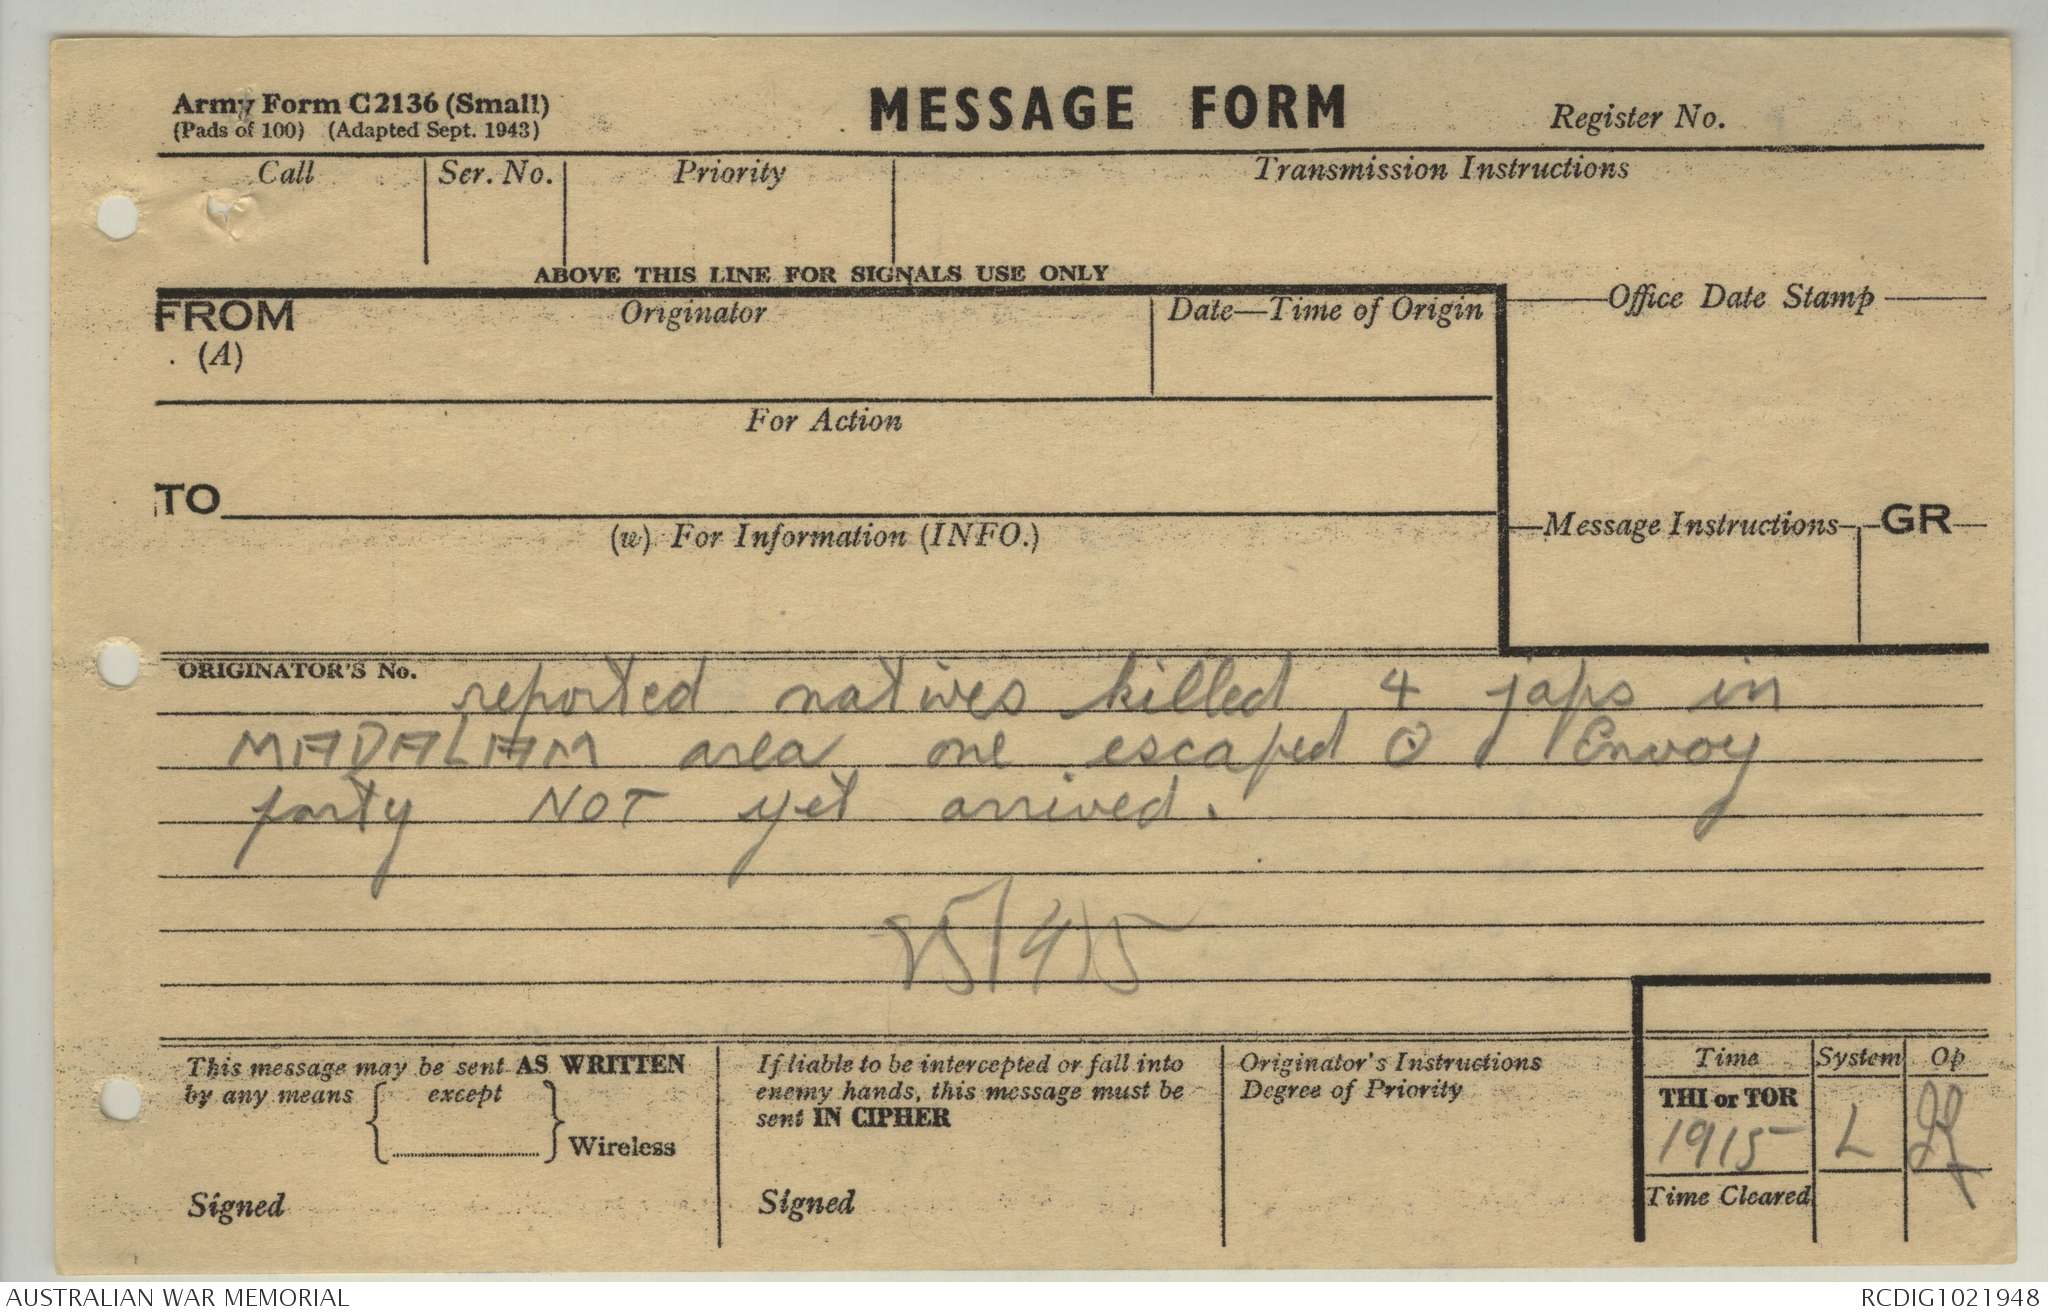 Army Form C2136 (Small)
(Pads of 100) (Adapted Sept. 1943)
MESSAGE FORM
Register No.
Call
Ser. No.
Priority
Transmission Instructions
ABOVE THIS LINE FOR SIGNALS USE ONLY
FROM
(A)
Originator
Date—Time of Origin
Office Date Stamp
For Action
TO
(w) For Information (INFO.)
Message Instructions
GR
ORIGINATOR'S No.
reported natives killed 4 japs in
MADALAM area one escaped ⊙ Envoy
party NOT yet arrived.
This message may be sent AS WRITTEN
by any means { except }
Wireless
Signed
If liable to be intercepted or fall into
enemy hands, this message must be
sent IN CIPHER
Signed
Originator's Instructions
Degree of Priority
Time
System
Op
THI or TOR
1915
L
Time Cleared
AUSTRALIAN WAR MEMORIAL
RCDIG1021948